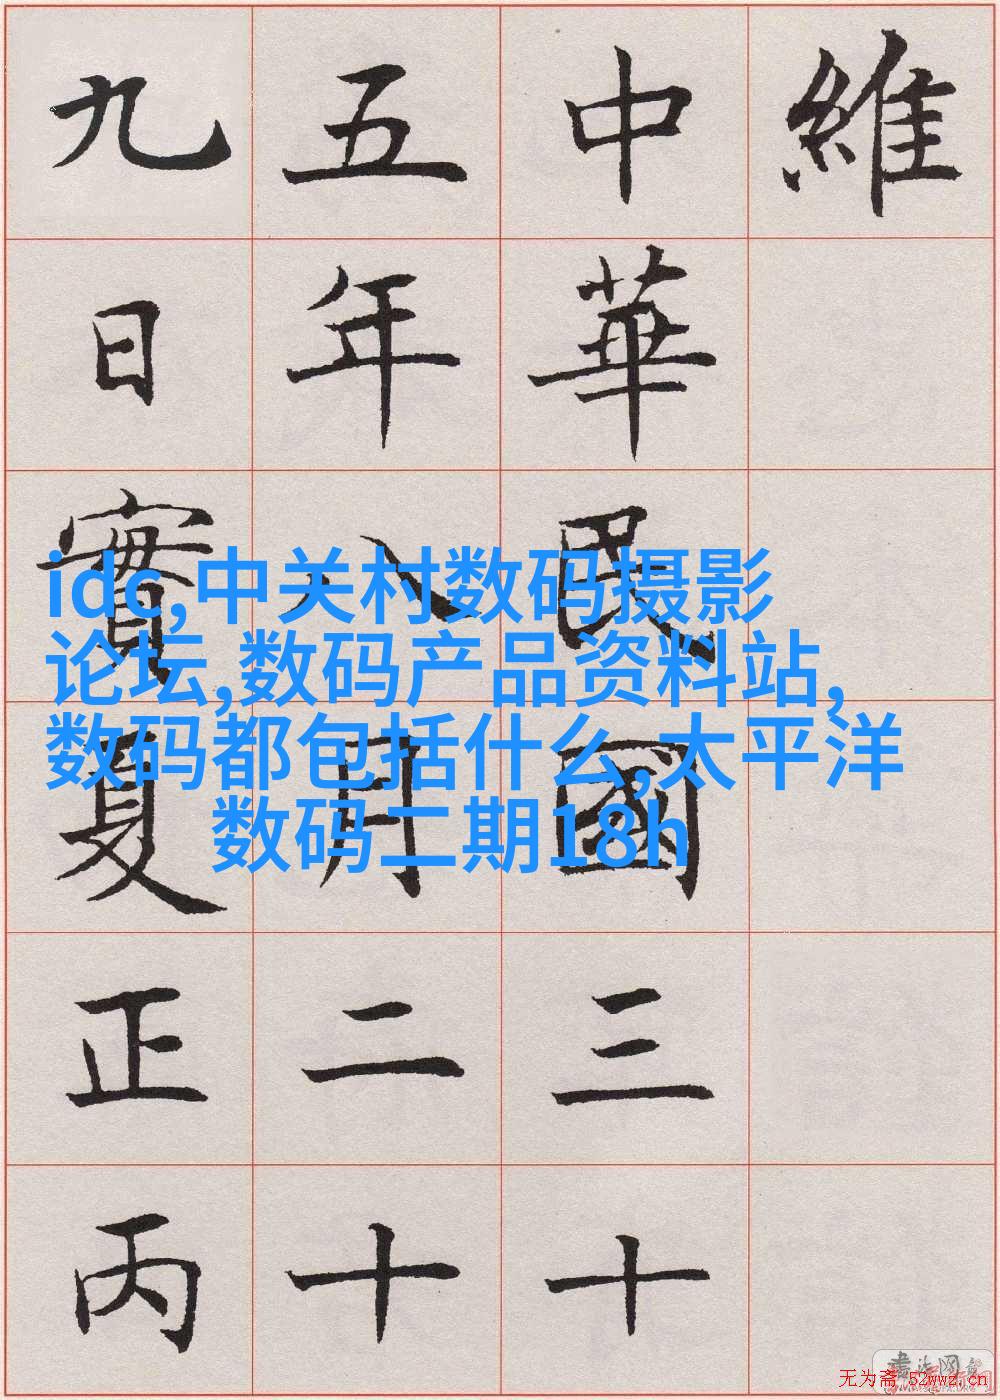 維
中華民國三十
五年八月二十
九日實夏正丙
idc,中关村数码摄影
论坛,数码产品资料站,
数码都包括什么,太平洋
数码二期18h
无为斋 52wwz.cn